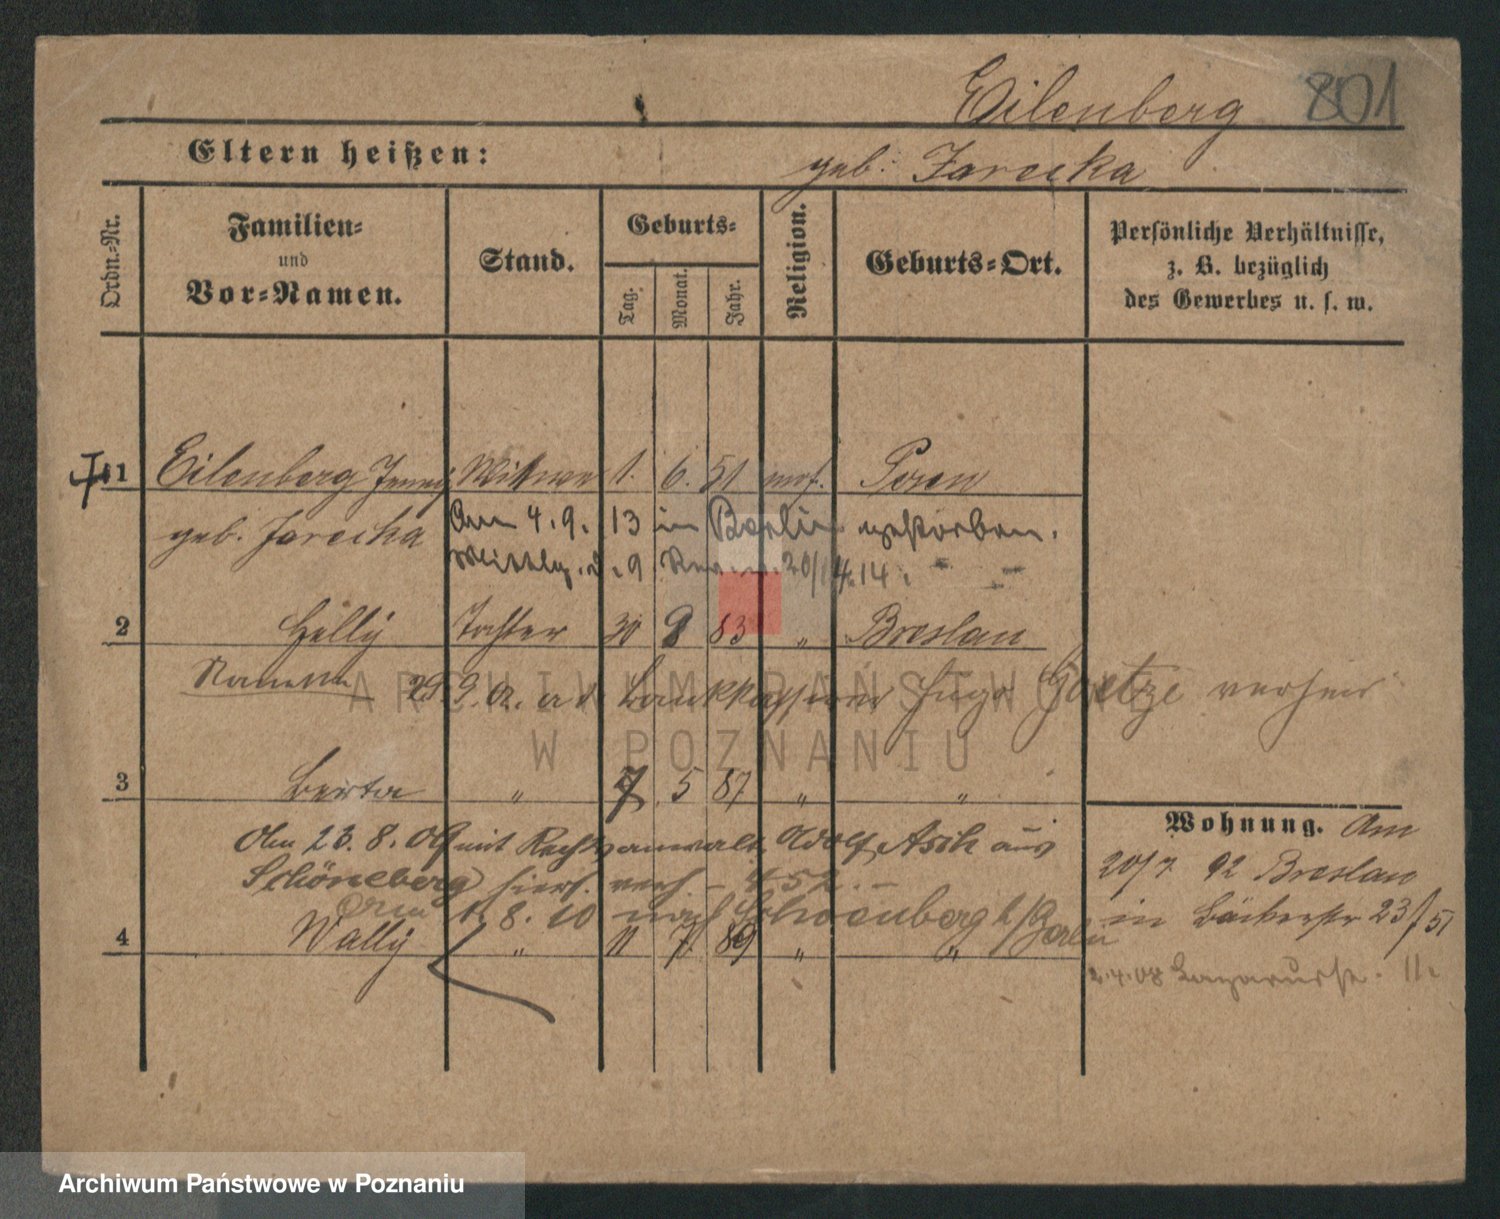 Eilenberg 801
Eltern heißen: geb. Jarecka
Ordn.-Nr.
Familien-
und
Vor-Namen.
Stand.
Geburts-
Tag.
Monat.
Jahr.
Religion.
Geburts-Ort.
Persönliche Verhältnisse,
z. B. bezüglich
des Gewerbes u. s. w.
1 Eilenberg Jenny Witwe 1. 6. 51 mos. Posen
geb. Jarecka Am 4. 9. 13 in Berlin gestorben.
9 14
2 Helly Tochter 30 9 83 " Breslau
29. 9. Bankkassierer Hugo Goetze verheir
3 Berta " 7 5 87 " "
Am 23. 8. 09 mit Rechtsanwalt Adolf Asch aus
Schöneberg hiers. verh. - 452. -
1. 8. 10 nach Schoeneberg b/Berlin
4 Wally " 11 7. 89 " "
Wohnung. Am
20/7 92 Breslau
in Bäckerstr 23/51
2.4.08 Lazarusstr. 11.
ARCHIWUM PAŃSTWOWE
W POZNANIU
Archiwum Państwowe w Poznaniu